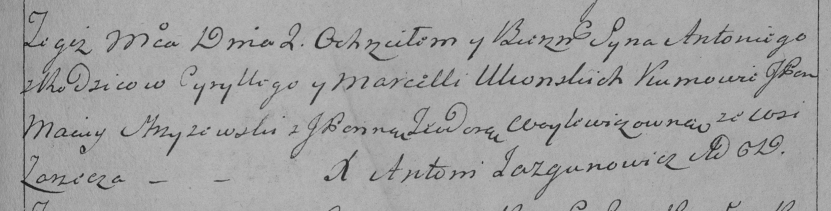 Tegoż Mca Dnia 2. Ochrzciłem y Bierzm Syna Antoniego
z Rodzicow Cyryllego y Marcelli Ukonskich Kumowie JPan
Maciey Skrzyzewski z JPanną Teodorą Woylewiczowną ze wsi
Zarzecza — — X Antoni Lazgunowicz AD